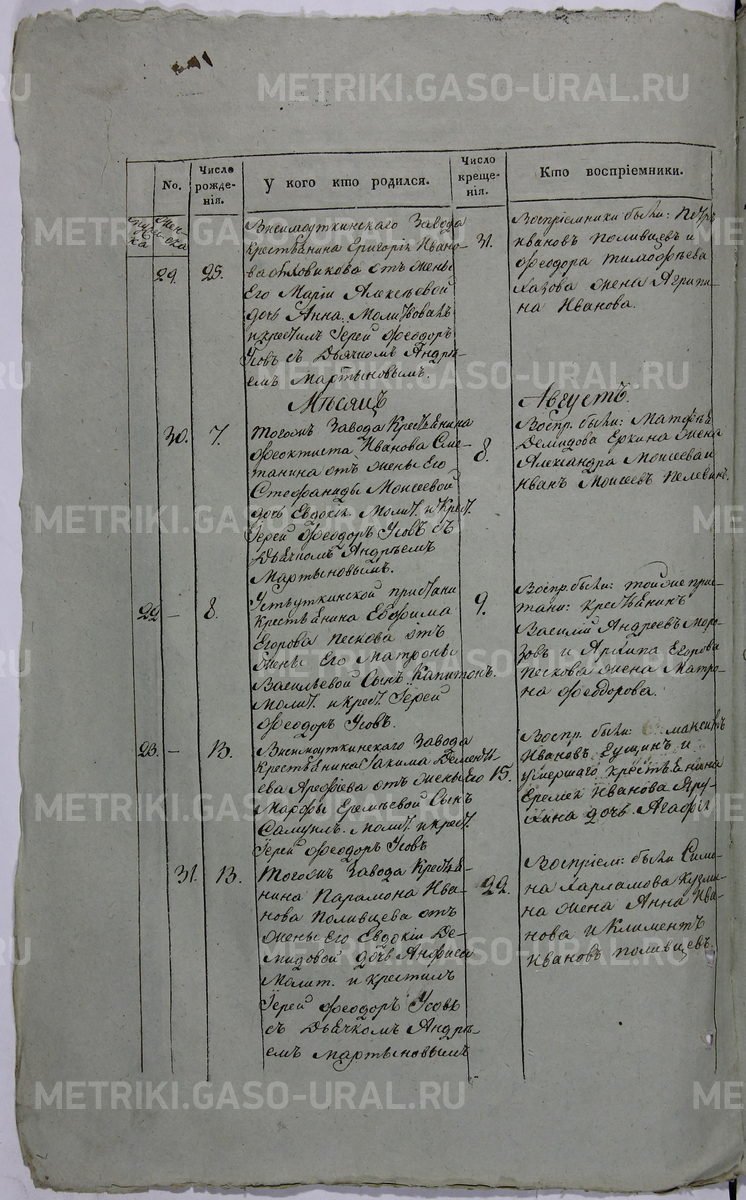 METRIKI.GASO-URAL.RU
No.
Число рожде-нія.
У кого кто родился.
Число креще-нія.
Кто воспріемники.
29.
25.
Висимоуткинскаго Завода
крестьянина Григорія Ивано-
ва отъ жены
Его Маріи Алексѣевой
дочь Анна. Молитвовалъ
и крестилъ Іерей Ѳеодоръ
Усовъ съ Дьячкомъ Андрѣ-
емъ Мартыновымъ.
31.
Воспріемники были: Петръ
Ивановъ Поливцевъ и
Ѳеодора Тимоѳѣева
жена Агрипи-
на Иванова.
Мѣсяцъ
Августъ.
30.
7.
Тогожъ Завода Крестьянина
Ѳеоктиста Иванова Сме-
танина отъ жены Его
Стефаниды Моисеевой
дочь Евдокія Молит. и Крест.
Іерей Ѳеодоръ Усовъ съ
Дьячкомъ Андрѣемъ
Мартыновымъ.
8.
Воспр. были: Матѳѣя
Демидова Еркина жена
Александра Моисеева и
Иванъ Моисеевъ Пелевинъ.
22
8.
Устьуткинской пристани
крестьянина Евфима
Егорова Пескова отъ
жены Его Матроны
Васильевой Сынъ Капитонъ.
Молит. и крест. Іерей
Ѳеодоръ Усовъ.
9.
Воспр. были: тойже при-
стани: крестьянинъ
Василій Андреевъ Моро-
зовъ и Архипа Егорова
Пескова жена Матро-
на Ѳеодорова.
23.
13.
Висимоуткинскаго Завода
крестьянина Іакима Дементи-
ева Ареѳіева отъ жены его
Марѳы Еремѣевой Сынъ
Самуилъ. Молит. и крест.
Іерей Ѳеодоръ Усовъ
15.
Воспр. были Максимъ
Ивановъ Гущинъ и
умершаго крестьянина
Еремѣя Иванова Яру-
шина дочь Агафія
31.
13.
Тогожъ Завода Крестья-
нина Парамона Ива-
нова Поливцева отъ
жены Его Евдокіи Де-
мидовой дочь Анфиса
Молит. и крестилъ
Іерей Ѳеодоръ Усовъ
съ Дьячкомъ Андрѣ-
емъ Мартыновымъ
22.
Воспріем: были Симо-
на Харламова Кузми-
на жена Анна Ива-
нова и Климентъ
Ивановъ Поливцевъ.
METRIKI.GASO-URAL.RU